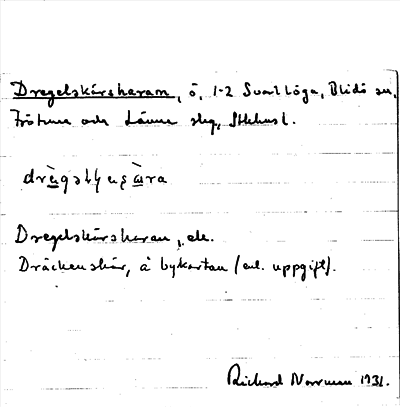 Dregelskärsharam, ö, 1-2 Svartlöga, Blidö sn,
Frötuna och Länna slg, Sthlms l.
Dregelskärsharan, ek.
Dräckenskär, å bykartan (enl. uppgift).
Richard Norrman 1931.